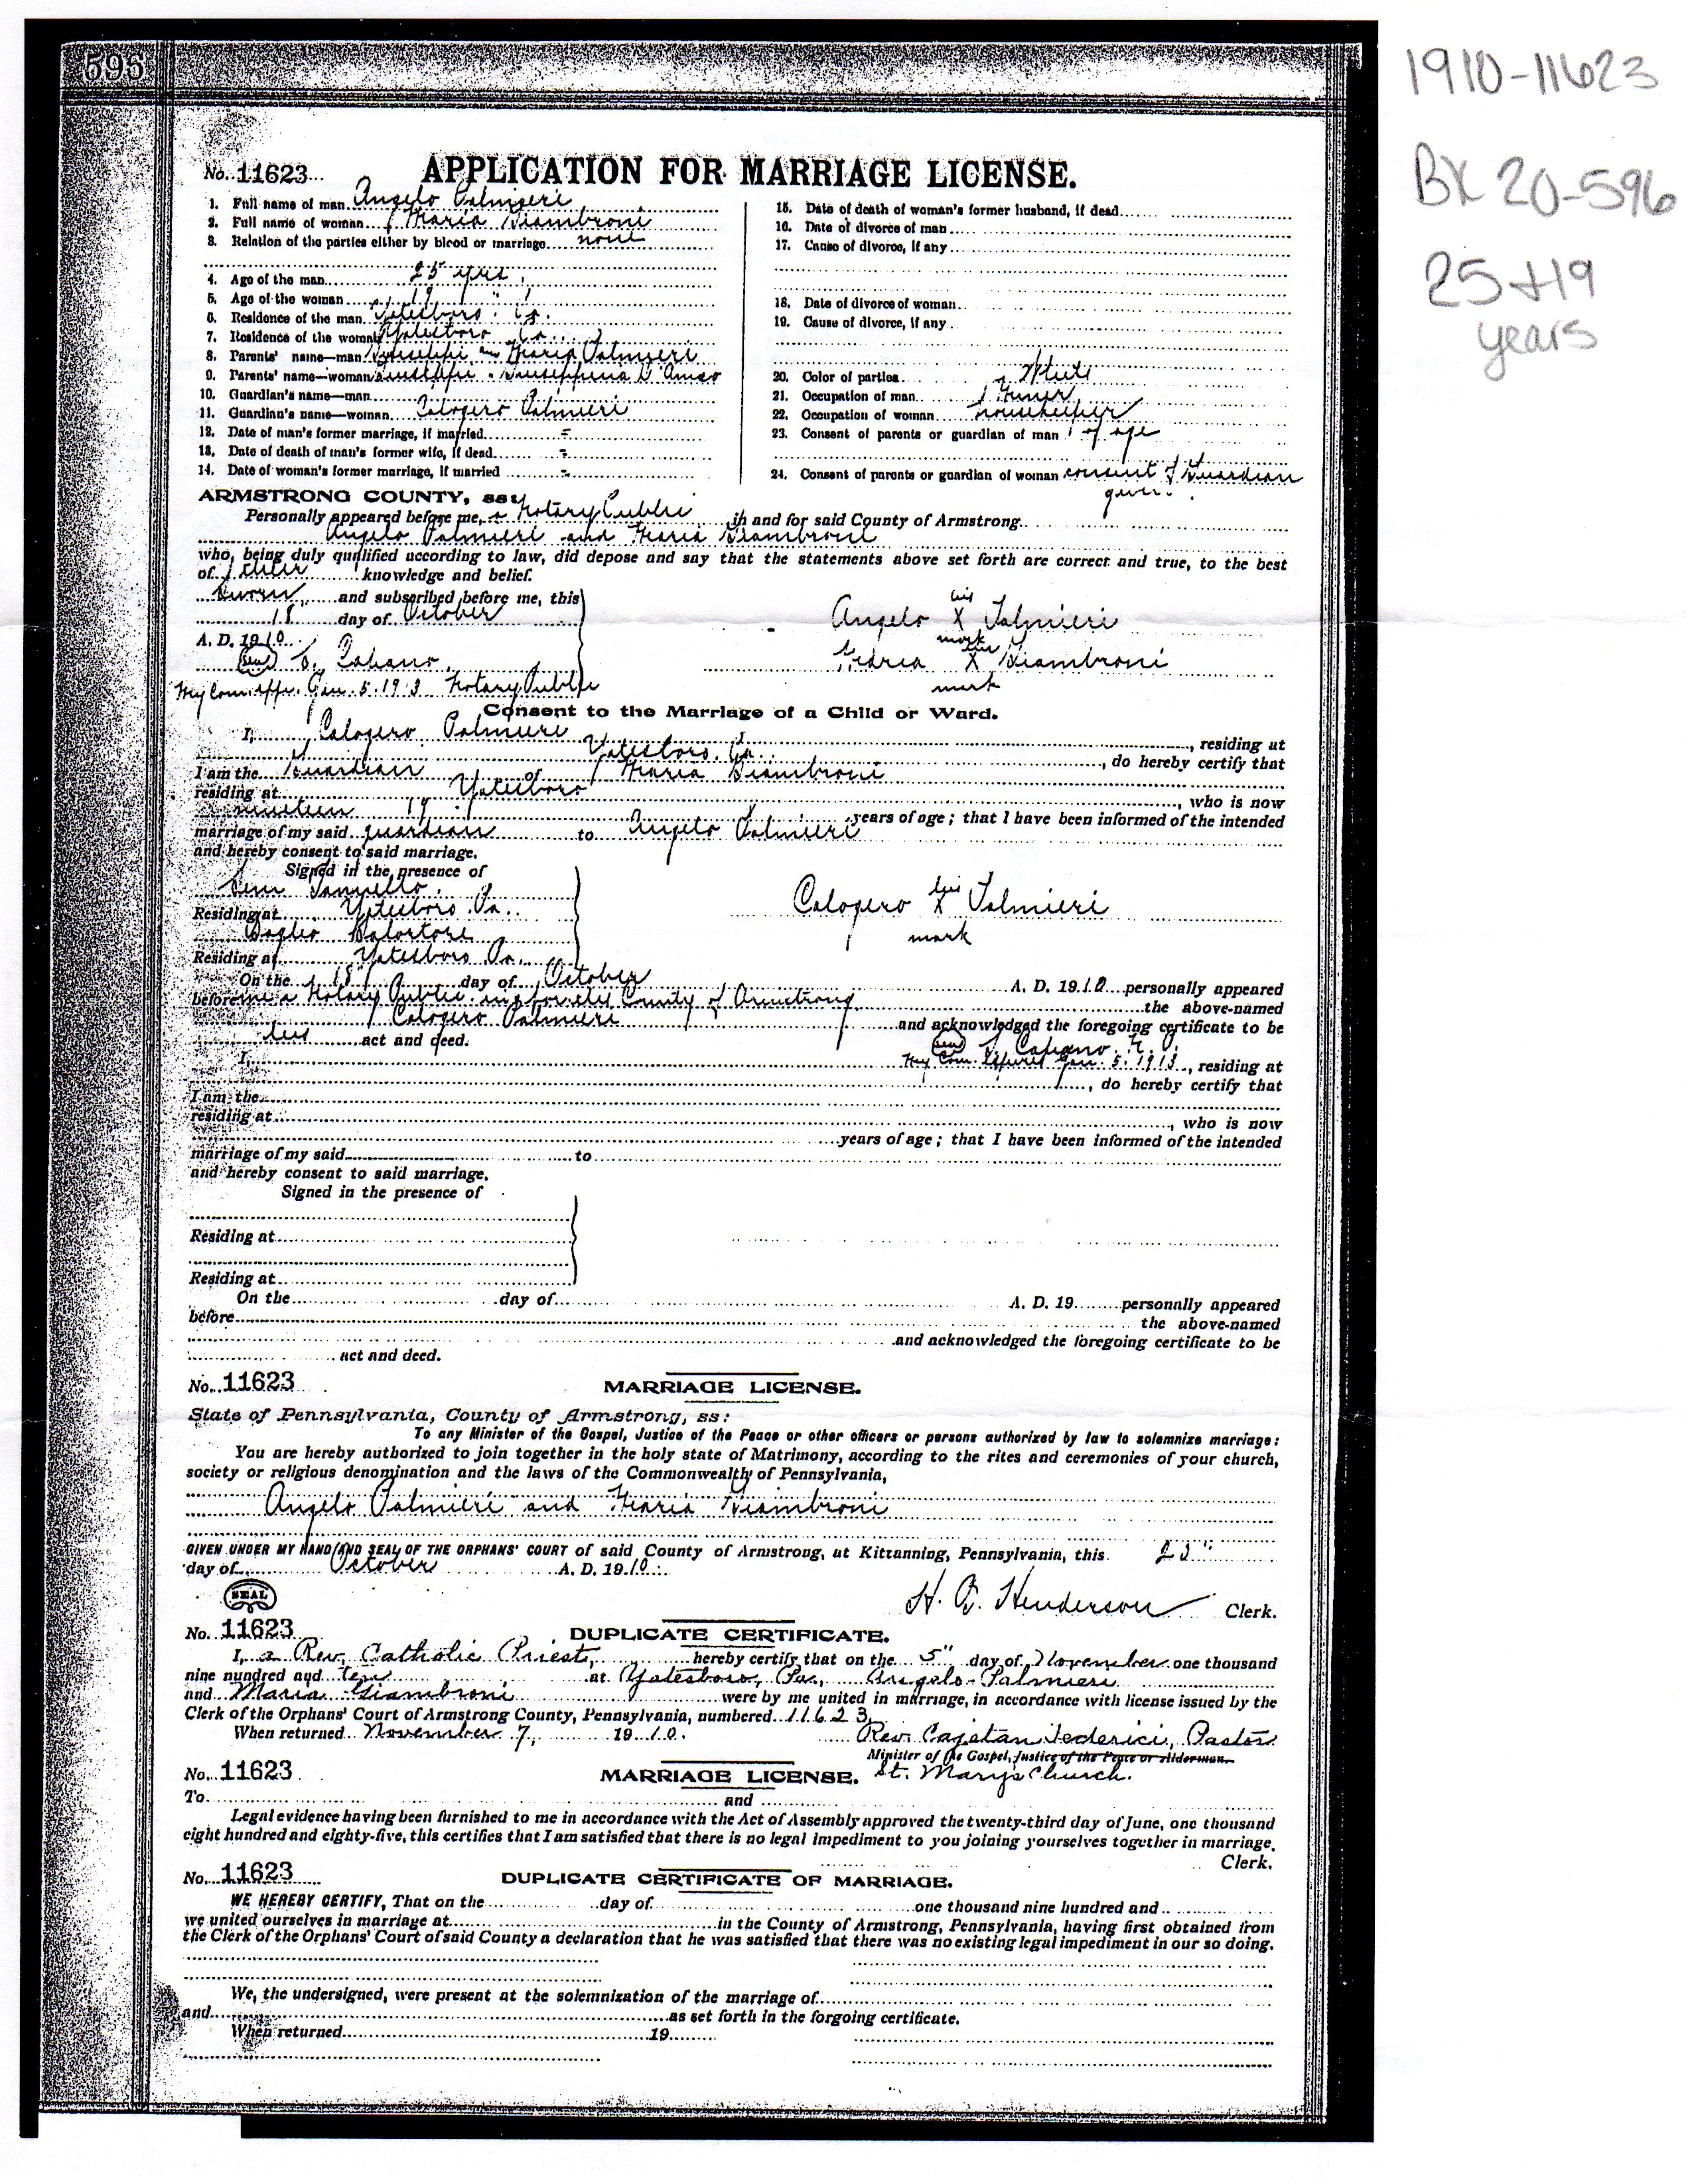 596
1910-11623
BK 20-596
25 + 19
years
No. 11623 APPLICATION FOR MARRIAGE LICENSE.
1. Full name of man Angelo Palmieri
2. Full name of woman Maria Giambroni
3. Relation of the parties either by blood or marriage none
4. Age of the man 25 yrs.
5. Age of the woman 19 "
6. Residence of the man Yatesboro Pa.
7. Residence of the woman Yatesboro Pa.
8. Parents' name—man Giuseppe and Maria Palmieri
9. Parents' name—woman Giuseppe " Giuseppina D'Amico
10. Guardian's name—man
11. Guardian's name—woman Calogero Palmieri
12. Date of man's former marriage, if married =
13. Date of death of man's former wife, if dead =
14. Date of woman's former marriage, if married =
15. Date of death of woman's former husband, if dead
16. Date of divorce of man
17. Cause of divorce, if any
18. Date of divorce of woman
19. Cause of divorce, if any
20. Color of parties White
21. Occupation of man Miner
22. Occupation of woman housekeeper
23. Consent of parents or guardian of man of age
24. Consent of parents or guardian of woman consent of Guardian
given.
ARMSTRONG COUNTY, ss:
Personally appeared before me, a Notary Public in and for said County of Armstrong
Angelo Palmieri and Maria Giambroni
who, being duly qualified according to law, did depose and say that the statements above set forth are correct and true, to the best
of their knowledge and belief.
Sworn and subscribed before me, this
18 day of October
A. D. 1910.
(seal)
My Com. Exp. Jan. 5. 1913 Notary Public
his
Angelo X Palmieri
mark
her
Maria X Giambroni
mark
Consent to the Marriage of a Child or Ward.
I, Calogero Palmieri, residing at
Yatesboro, Pa., do hereby certify that
I am the Guardian of Maria Giambroni
residing at Yatesboro, who is now
nineteen 19 years of age; that I have been informed of the intended
marriage of my said guardian to Angelo Palmieri
and hereby consent to said marriage.
Signed in the presence of
Residing at Yatesboro Pa.
Residing at Yatesboro Pa.
his
Calogero X Palmieri
mark
On the 18 day of October A. D. 1910 personally appeared
before me a Notary Public in & for said County of Armstrong the above-named
Calogero Palmieri and acknowledged the foregoing certificate to be
his act and deed.
(seal)
My Com. Expires Jan. 5. 1913
I, residing at
, do hereby certify that
I am the
residing at , who is now
years of age; that I have been informed of the intended
marriage of my said to
and hereby consent to said marriage.
Signed in the presence of
Residing at
Residing at
On the day of A. D. 19 personally appeared
before the above-named
and acknowledged the foregoing certificate to be
act and deed.
No. 11623 MARRIAGE LICENSE.
State of Pennsylvania, County of Armstrong, ss:
To any Minister of the Gospel, Justice of the Peace or other officers or persons authorized by law to solemnize marriage:
You are hereby authorized to join together in the holy state of Matrimony, according to the rites and ceremonies of your church,
society or religious denomination and the laws of the Commonwealth of Pennsylvania,
Angelo Palmieri and Maria Giambroni
GIVEN UNDER MY HAND AND SEAL OF THE ORPHANS' COURT of said County of Armstrong, at Kittanning, Pennsylvania, this
day of October A. D. 1910.
SEAL
H. E. Henderson Clerk.
No. 11623 DUPLICATE CERTIFICATE.
I, a Rev. Catholic Priest, hereby certify that on the 5" day of November one thousand
nine hundred and ten at Yatesboro, Pa., Angelo Palmieri
and Maria Giambroni were by me united in marriage, in accordance with license issued by the
Clerk of the Orphans' Court of Armstrong County, Pennsylvania, numbered 11623.
When returned November 7, 1910. Rev. Cajetan Federici, Pastor
Minister of the Gospel, Justice of the Peace or Alderman.
St. Mary's Church.
No. 11623 MARRIAGE LICENSE.
To and
Legal evidence having been furnished to me in accordance with the Act of Assembly approved the twenty-third day of June, one thousand
eight hundred and eighty-five, this certifies that I am satisfied that there is no legal impediment to you joining yourselves together in marriage.
Clerk.
No. 11623 DUPLICATE CERTIFICATE OF MARRIAGE.
WE HEREBY CERTIFY, That on the day of one thousand nine hundred and
we united ourselves in marriage at in the County of Armstrong, Pennsylvania, having first obtained from
the Clerk of the Orphans' Court of said County a declaration that he was satisfied that there was no existing legal impediment in our so doing.
We, the undersigned, were present at the solemnization of the marriage of
and as set forth in the forgoing certificate.
When returned 19